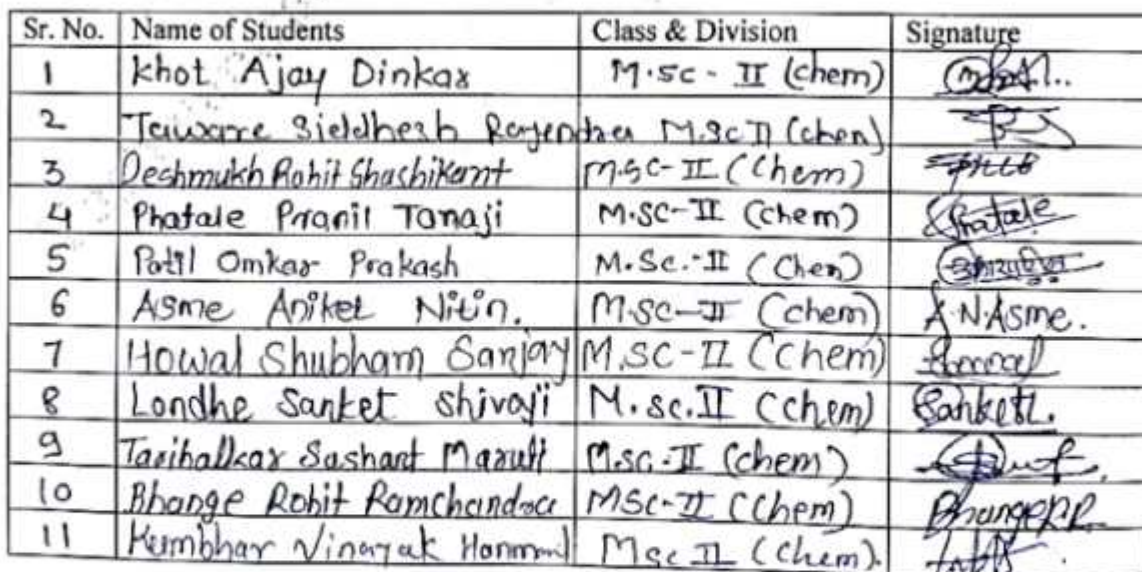 Sr. No. Name of Students Class & Division Signature
1 Khot Ajay Dinkar M.sc - II (chem)
2 Taware Siddhesh Rajendra M.Sc II (chem)
3 Deshmukh Rohit Shashikant M.SC-II (Chem)
4 Phatale Pranil Tanaji M.SC-II (Chem) Phatale
5 Patil Omkar Prakash M.Sc.-II (Chem)
6 Asme Aniket Nitin. M.SC-II (chem) A.N.Asme.
7 Howal Shubham Sanjay M.SC-II (Chem)
8 Londhe Sanket Shivaji M.sc.II (chem) Sanket L.
9 Tarihalkar Sashant Maruti M.sc.-II (chem)
10 Bhange Rohit Ramchandra MSc-II (Chem) Bhange R.R.
11 Kumbhar Vinayak Msc II (Chem).